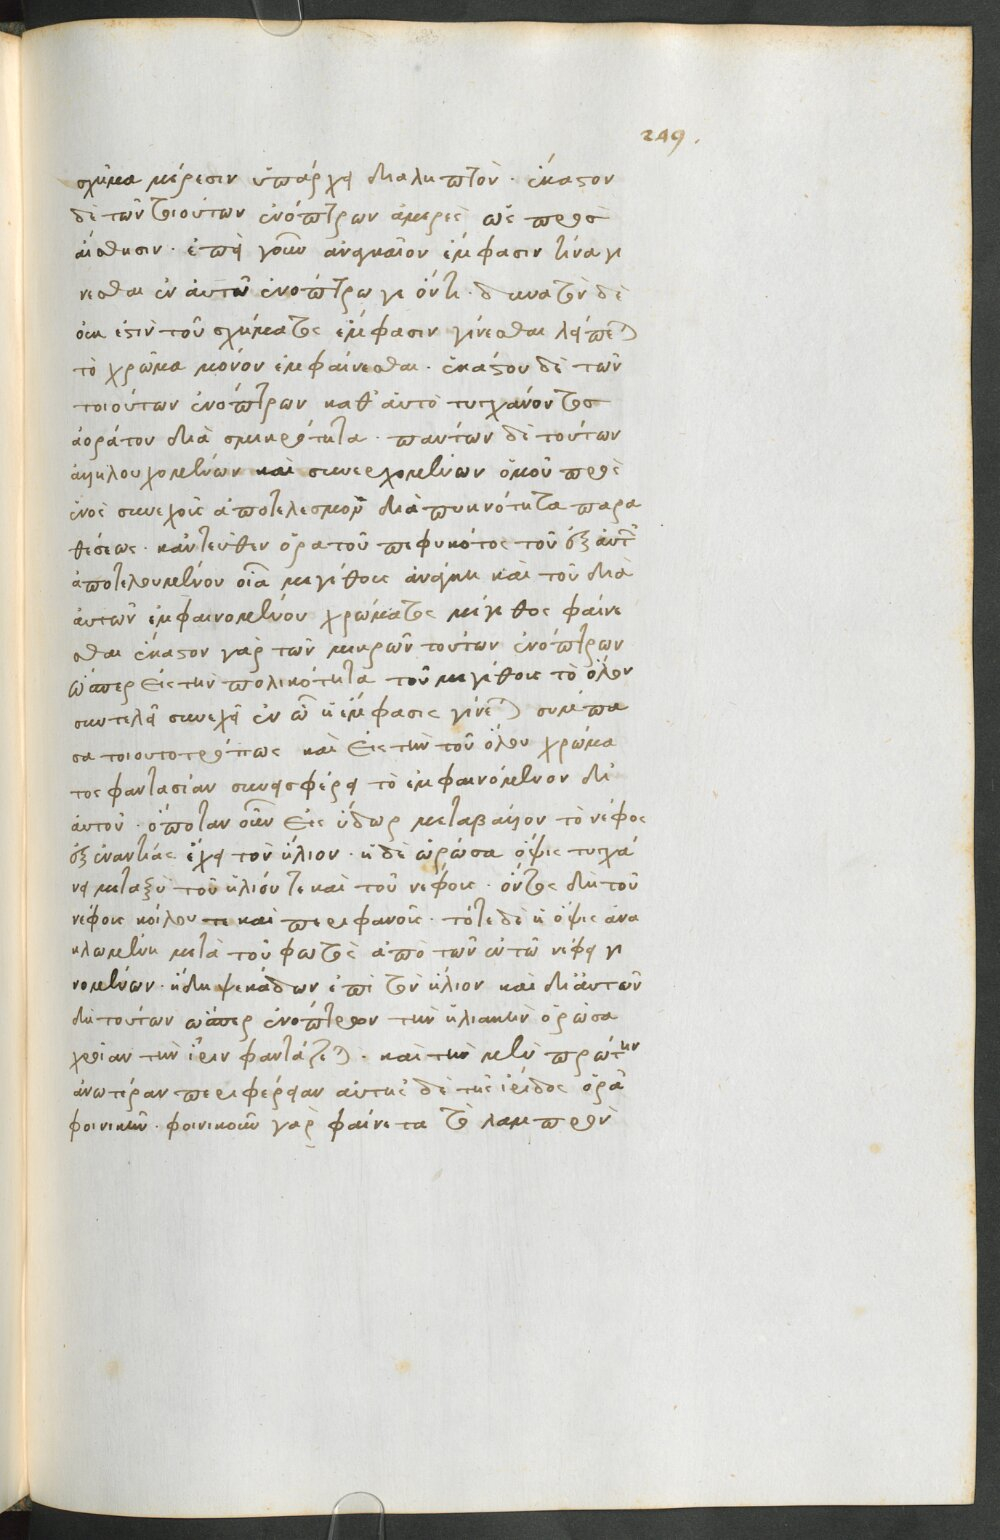 249.
σχῆμα μέρεσιν ὑπάρχει διαληπτὸν· ἕκαστον
δὲ τῶν τοιούτων ἐνόπτρων ἀμερὲς ὡς πρὸς
αἴσθησιν· ἐπεὶ γοῦν ἀναγκαῖον ἔμφασιν τινα γί
νεσθαι ἐν αὐτῶ ἐνόπτρω γε ὄντι· δυνατὸν δὲ
οὐκ ἐστὶν τοῦ σχήματος ἔμφασιν γίνεσθαι λείπεται
τὸ χρῶμα μόνον ἐμφαίνεσθαι· ἑκάστου δὲ τῶν
τοιούτων ἐνόπτρων καθ' αὑτὸ τυγχάνοντος
ἀοράτου διὰ σμικρότητα· πάντων δὲ τούτων
ἀλληλουχομένων καὶ συνερχομένων ὁμοῦ πρὸς
ἑνὸς συνεχοῦς ἀποτελεσμοῦ διὰ πυκνότητα παρα
θέσεως· κἀντεῦθεν ὁρᾶτοῦ πεφυκότος τοῦ ἐξ αὐτῶν
ἀποτελουμένου οἷα μεγέθους ἀνάγκη καὶ τοῦ διὰ
αὐτῶν ἐμφαινομένου χρώματος μέγεθος φαίνε
σθαι ἕκαστον γὰρ τῶν μικρῶν τούτων ἐνόπτρων
ὥσπερ εἰς τὴν πολικότητα τοῦ μεγέθους τὸ ὅλον
συντελεῖ συνεχεῖ ἐν ὧ ἡ ἔμφασις γίνεται σύμπα
σα τοιουτοτρόπως καὶ εἰς τὴν τοῦ ὅλου χρώμα
τος φαντασίαν συνεισφέρει τὸ ἐμφαινόμενον δι'
αὐτοῦ· ὁπόταν οὖν εἰς ὕδωρ μεταβάλλον τὸ νέφος
ἐξ ἐναντίας ἔχει τὸν ἥλιον· ἡ δὲ ὁρῶσα ὄψις τυγχά
νει μεταξὺ τοῦ ἡλίου τε καὶ τοῦ νέφους· ὄντος δὴ τοῦ
νέφους κοίλου τε καὶ περιφανοῦς· τότε δὲ ἡ ὄψις ἀνα
κλωμένη μετὰ τοῦ φωτὸς ἀπὸ τῶν ἐν τῶ νέφει γι
νομένων ἤδη ψεκάδων ἐπὶ τὸν ἥλιον καὶ δι' αὐτῶν
δὴ τούτων ὥσπερ ἐνόπτρον τὴν ἡλιακὴν ὁρῶσα
χροίαν τὴν ἶριν φαντάζεται· καὶ τὴν μὲν πρώτην
ἀνωτέραν περιφέρειαν αὐτῆς δὲ τῆς ἴριδος ὁρᾶ
φοινικῆν· φοινικοῦν γὰρ φαίνεται τὸ λαμπρὸν